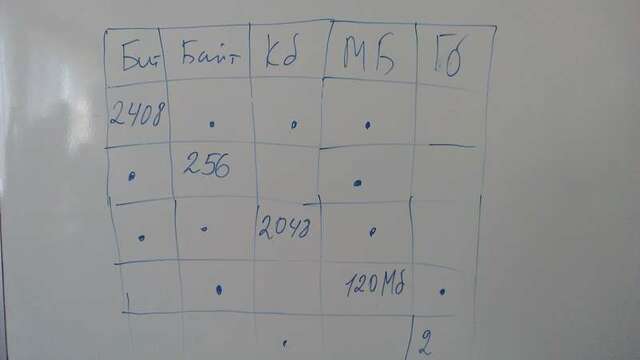 Бит Байт Кб МБ Гб
2408
256
2048
120Мб
2